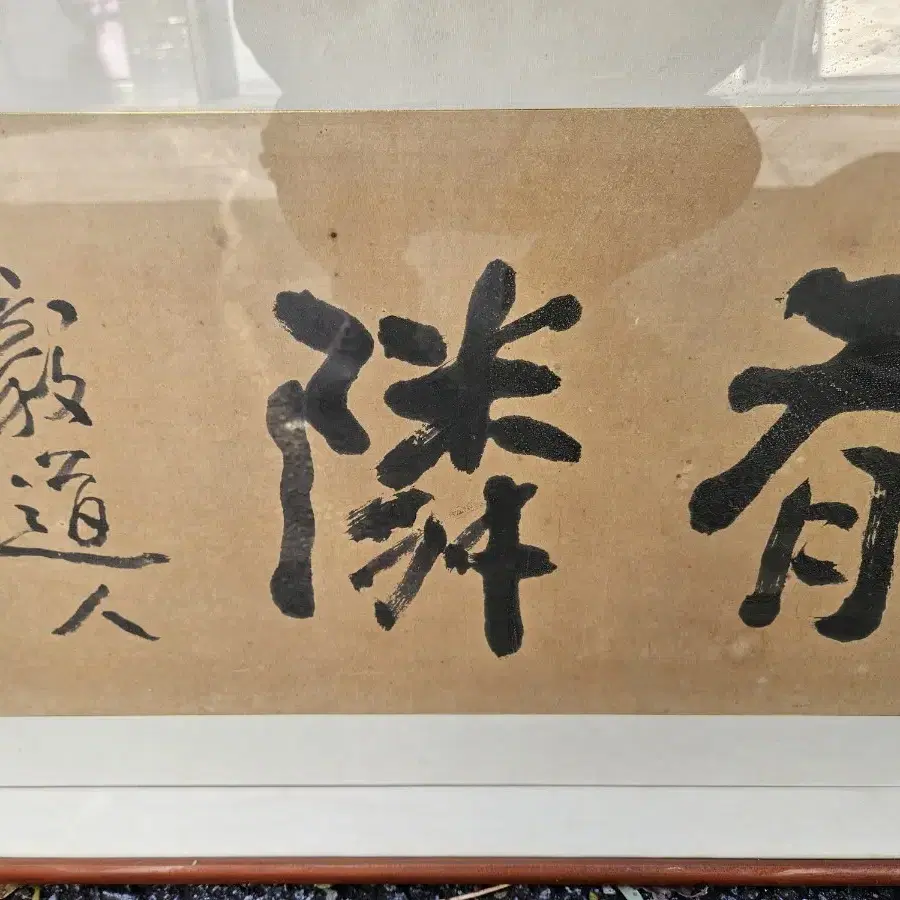 有隣
毅道人